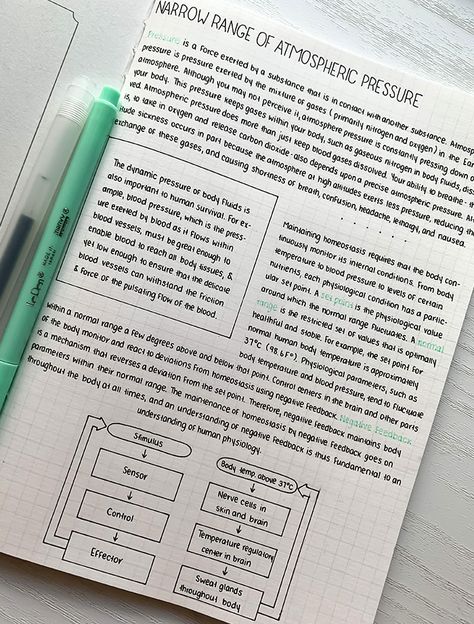 NARROW RANGE OF ATMOSPHERIC PRESSURE
Pressure is a force exerted by a substance that is in contact with another substance. Atmosp
pressure is pressure exerted by the mixture of gases (primarily nitrogen and oxygen) in the Ear
atmosphere. Although you may not perceive it, atmosphere pressure is constantly pressing down o
your body. This pressure keeps gases within your body, such as gaseous nitrogen in body fluids,
ved. Atmospheric pressure does more than just keep blood gases dissolved. Your ability to breathe - th
is, to take in oxygen and release carbon dioxide - also depends upon a precise atmospheric pressure.
itude sickness occurs in part because the atmosphere at high altitudes exerts less pressure, reducing the
exchange of these gases, and causing shortness of breath, confusion, headache, lethargy, and nausea.
The dynamic pressure of body fluids is
also important to human survival. For ex-
ample, blood pressure, which is the press-
ure exerted by blood as it flows within
blood vessels, must be great enough to
enable blood to reach all body tissues, &
yet low enough to ensure that the delicate
blood vessels can withstand the friction
& force of the pulsating flow of the blood.
Maintaining homeostasis requires that the body con-
tinuously monitor its internal conditions. From body
temperature to blood pressure to levels of certain
nutrients, each physiological condition has a partic-
ular set point. A set point is the physiological value
around which the normal range fluctuates. A normal
range is the restricted set of values that is optimally
healthful and stable. For example, the set point for
normal human body temperature is approximately
37°C (98.6°F). Physiological parameters, such as
body temperature and blood pressure, tend to fluctuate
within a normal range a few degrees above and below that point. Control centers in the brain and other parts
of the body monitor and react to deviations from homeostasis using negative feedback. Negative feedback
is a mechanism that reverses a deviation from the set point. Therefore, negative feedback maintains body
parameters within their normal range. The maintenance of homeostasis by negative feedback goes on
throughout the body at all times, and an understanding of negative feedback is thus fundamental to an
understanding of human physiology.
Stimulus
Sensor
Control
Effector
Body temp. above 37°C
Nerve cells in
skin and brain
Temperature regulatory
center in brain
Sweat glands
throughout body